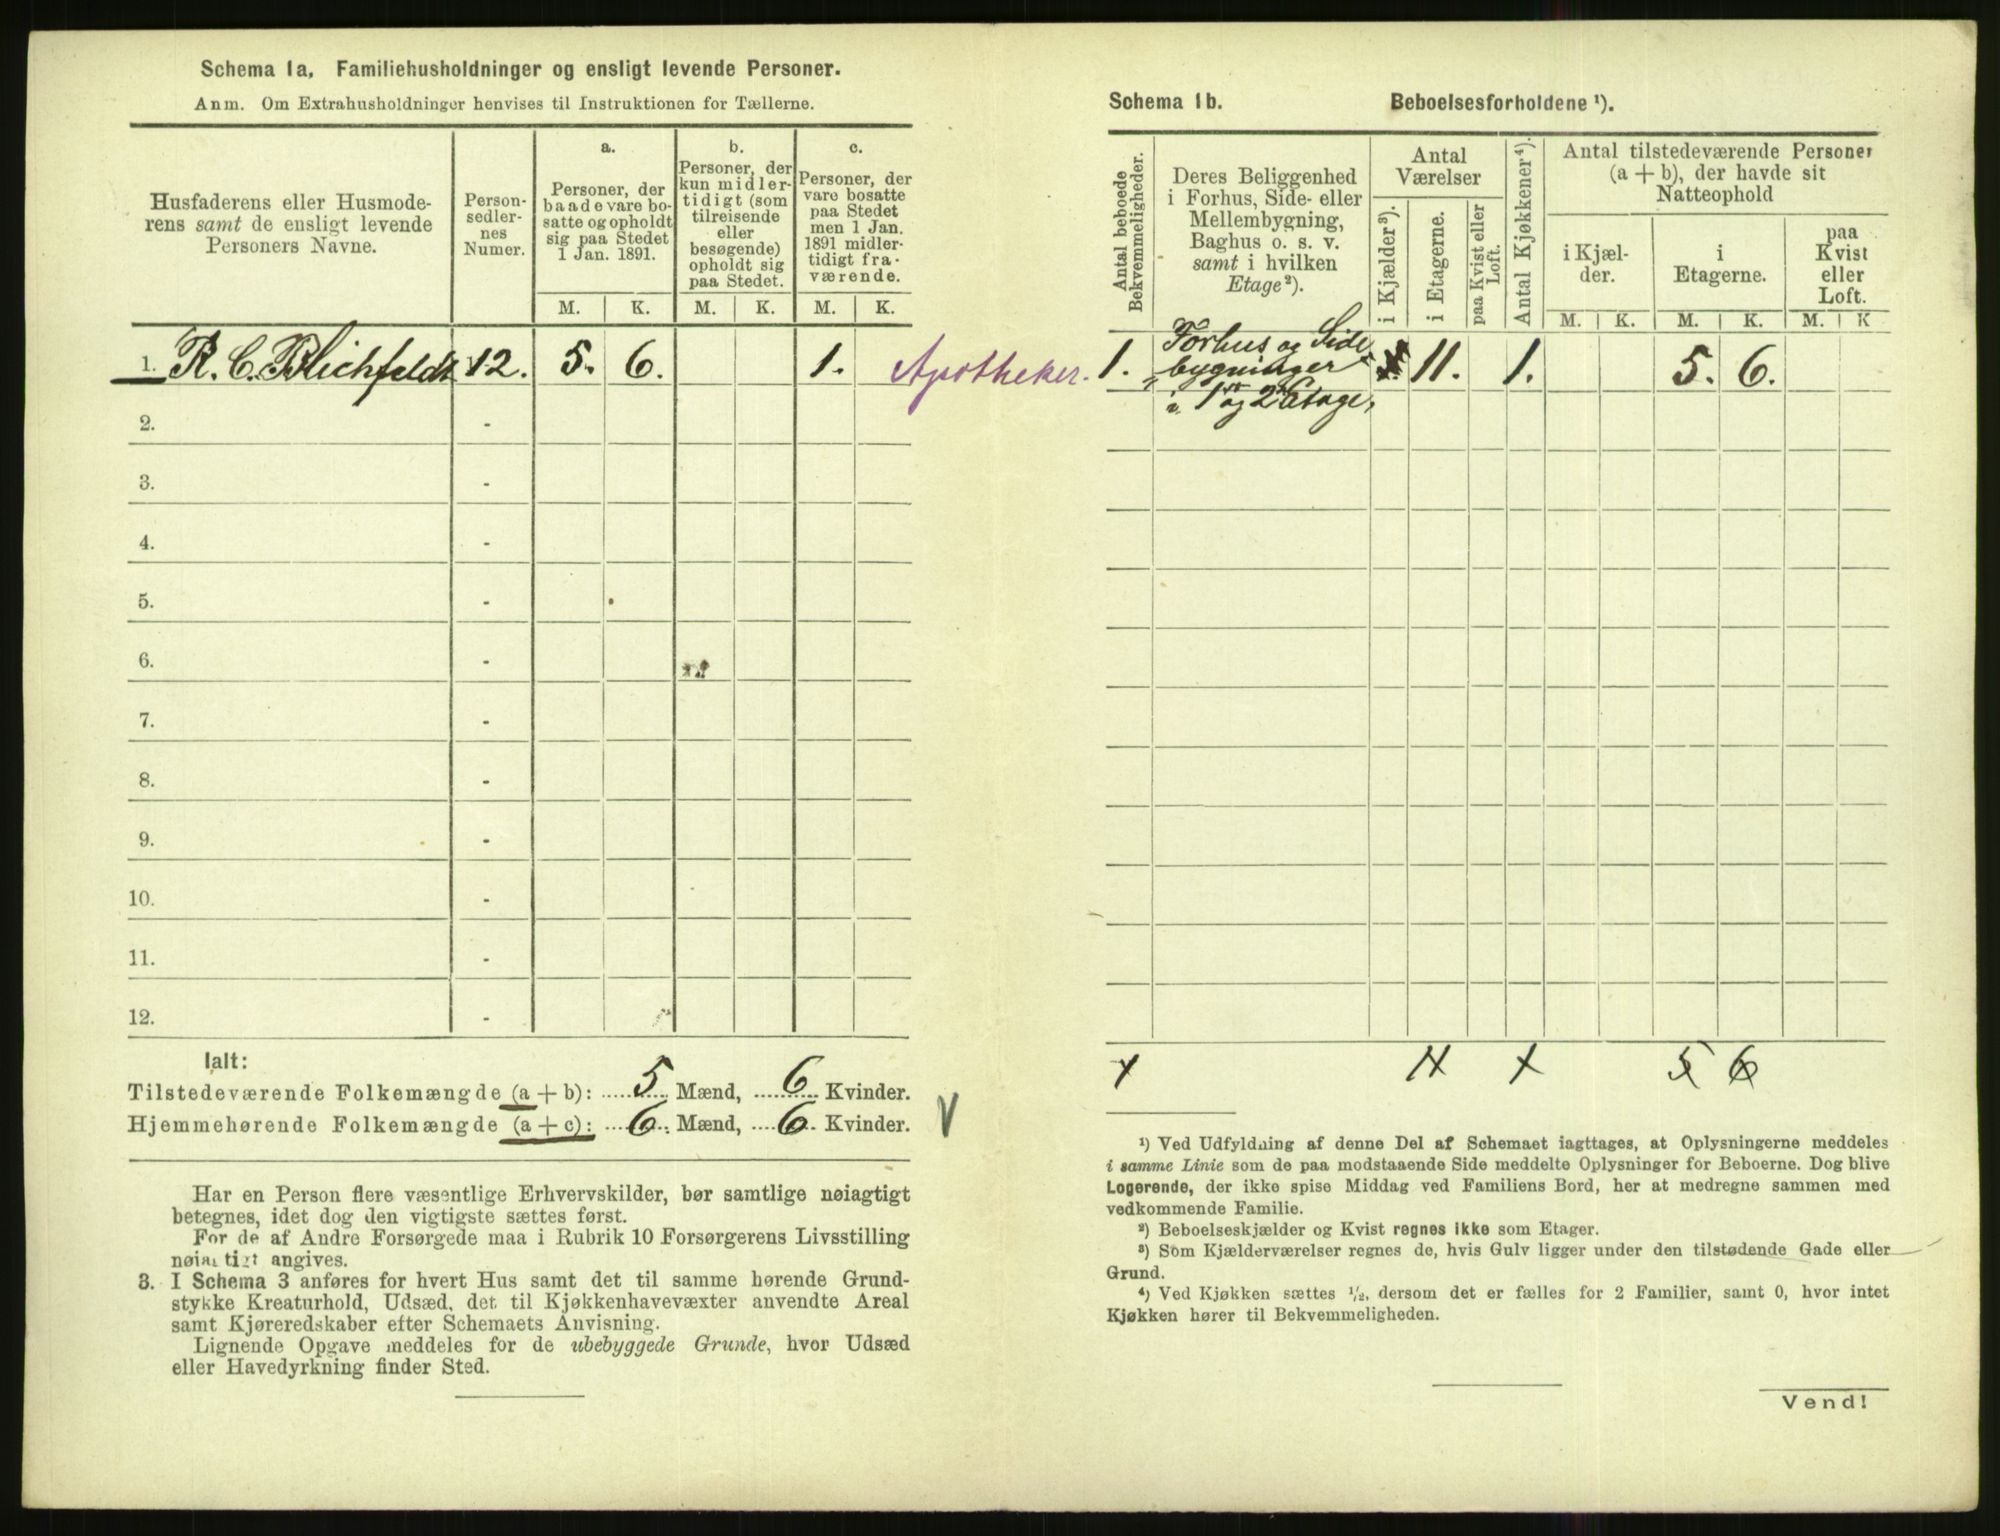 Schema 1a. Familiehusholdninger og ensligt levende Personer.
Anm. Om Extrahusholdninger henvises til Instruktionen for Tællerne.
Husfaderens eller Husmode-
rens samt de ensligt levende
Personers Navne.
Person-
sedler-
nes
Numer.
a.
Personer, der
baade vare bo-
satte og opholdt
sig paa Stedet
1 Jan. 1891.
b.
Personer, der
kun midler-
tidigt (som
tilreisende
eller
besøgende)
opholdt sig
paa Stedet.
c.
Personer, der
vare bosatte
paa Stedet
men 1 Jan.
1891 midler-
tidigt fra-
værende.
M. K. M. K. M. K.
1. R. C. Blichfeldt 12. 5. 6. 1. Apotheker.
2. -
3. -
4. -
5. -
6. -
7. -
8. -
9. -
10. -
11. -
12. -
Ialt:
Tilstedeværende Folkemængde (a + b): 5 Mænd, 6 Kvinder.
Hjemmehørende Folkemængde (a + c): 6 Mænd, 6 Kvinder.
Har en Person flere væsentlige Erhvervskilder, bør samtlige nøiagtigt
betegnes, idet dog den vigtigste sættes først.
For de af Andre Forsørgede maa i Rubrik 10 Forsørgerens Livsstilling
nøiagtigt angives.
3. I Schema 3 anføres for hvert Hus samt det til samme hørende Grund-
stykke Kreaturhold, Udsæd, det til Kjøkkenhavevæxter anvendte Areal
samt Kjøreredskaber efter Schemaets Anvisning.
Lignende Opgave meddeles for de ubebyggede Grunde, hvor Udsæd
eller Havedyrkning finder Sted.
Schema 1b. Beboelsesforholdene ¹).
Antal beboede
Bekvemmeligheder.
Deres Beliggenhed
i Forhus, Side- eller
Mellembygning,
Baghus o. s. v.
samt i hvilken
Etage²).
Antal
Værelser
i Kjælder³).
i Etagerne.
paa Kvist eller
Loft.
Antal Kjøkkener⁴).
Antal tilstedeværende Personer
(a + b), der havde sit
Natteophold
i Kjæl-
der.
i
Etagerne.
paa
Kvist
eller
Loft.
M. K. M. K. M. K
1. Forhus og Side
bygninger 11. 1. 5. 6.
i 1 og 2 Etage,
1 11 1 5 6
¹) Ved Udfyldning af denne Del af Schemaet iagttages, at Oplysningerne meddeles
i samme Linie som de paa modstaaende Side meddelte Oplysninger for Beboerne. Dog blive
Logerende, der ikke spise Middag ved Familiens Bord, her at medregne sammen med
vedkommende Familie.
²) Beboelseskjælder og Kvist regnes ikke som Etager.
³) Som Kjælderværelser regnes de, hvis Gulv ligger under den tilstødende Gade eller
Grund.
⁴) Ved Kjøkken sættes ½, dersom det er fælles for 2 Familier, samt 0, hvor intet
Kjøkken hører til Bekvemmeligheden.
Vend!